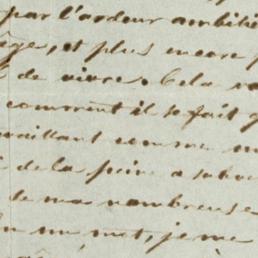 par l'ardeur ambitie
et plus encore
de vivre. Cela
comment il se fait q
vaillant comme un
de la peine a subve
de ma nombreuse
un mot, je me